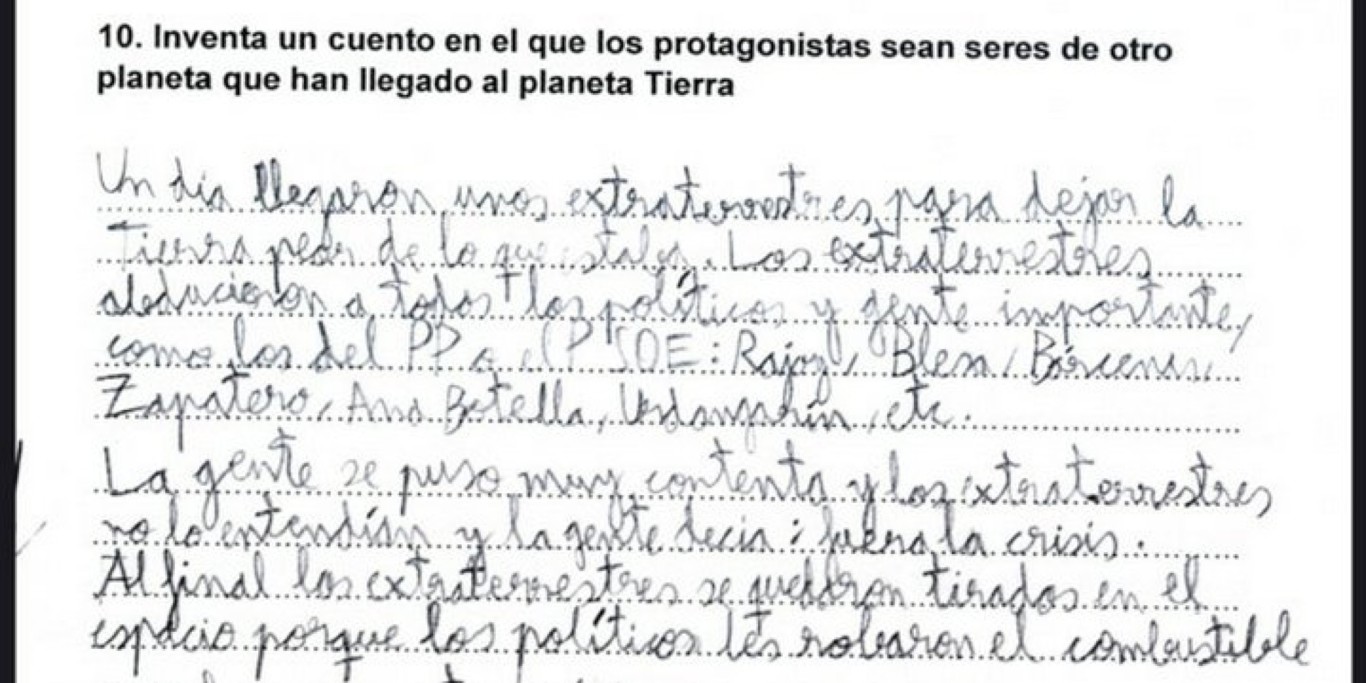 10. Inventa un cuento en el que los protagonistas sean seres de otro
planeta que han llegado al planeta Tierra
Un día llegaron unos extraterrestres para dejar la
Tierra peor de lo que estaba. Los extraterrestres
abducieron a todos los políticos y gente importante,
como los del PP o el PSOE: Rajoy, Blesa, Bárcenas,
Zapatero, Ana Botella, Urdangarín, etc.
La gente se puso muy contenta y los extraterrestres
no lo entendían y la gente decia: fuera la crisis.
Al final los extraterrestres se quedaron tirados en el
espacio porque los políticos les robaron el combustible